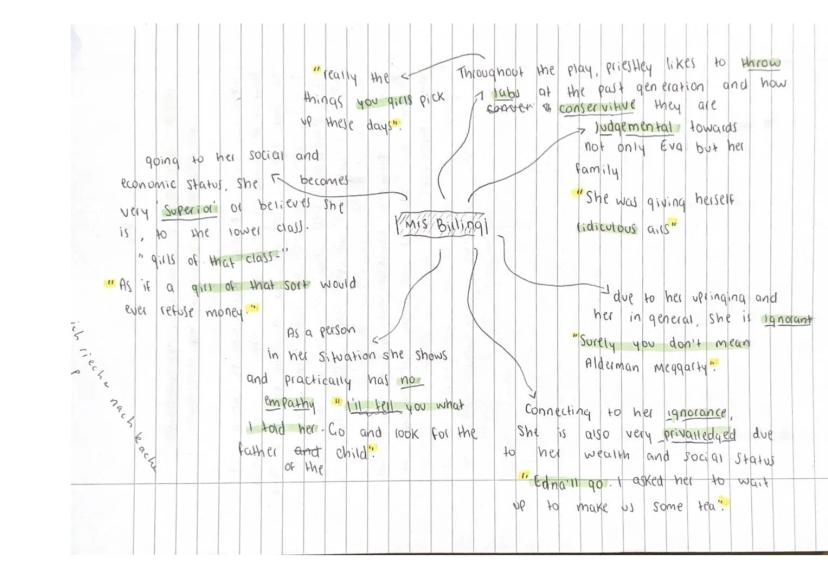 "really the
things you girls pick
up these days".
Throughout the play, priestley likes to throw
jabs at the past generation and how
conservitive they are
judgemental towards
not only Eva but her
family
"She was giving herself
ridiculous airs"
going to her social and
economic status, she becomes
very 'superior' or believes she
is, to the lower class.
"girls of that class-"
"As if a girl of that sort would
ever refuse money."
Mrs Billing
due to her upringing and
her in general, she is ignorant
"Surely you don't mean
Alderman Meggarty".
As a person
in her situation she shows
and practically has no
empathy "I'll tell you what
I told her. Go and look for the
father and child".
of the
Connecting to her ignorance,
she is also very privalledged due
to her wealth and social status
"Edna'll go. I asked her to wait
up to make us some tea".
ich rieche nach